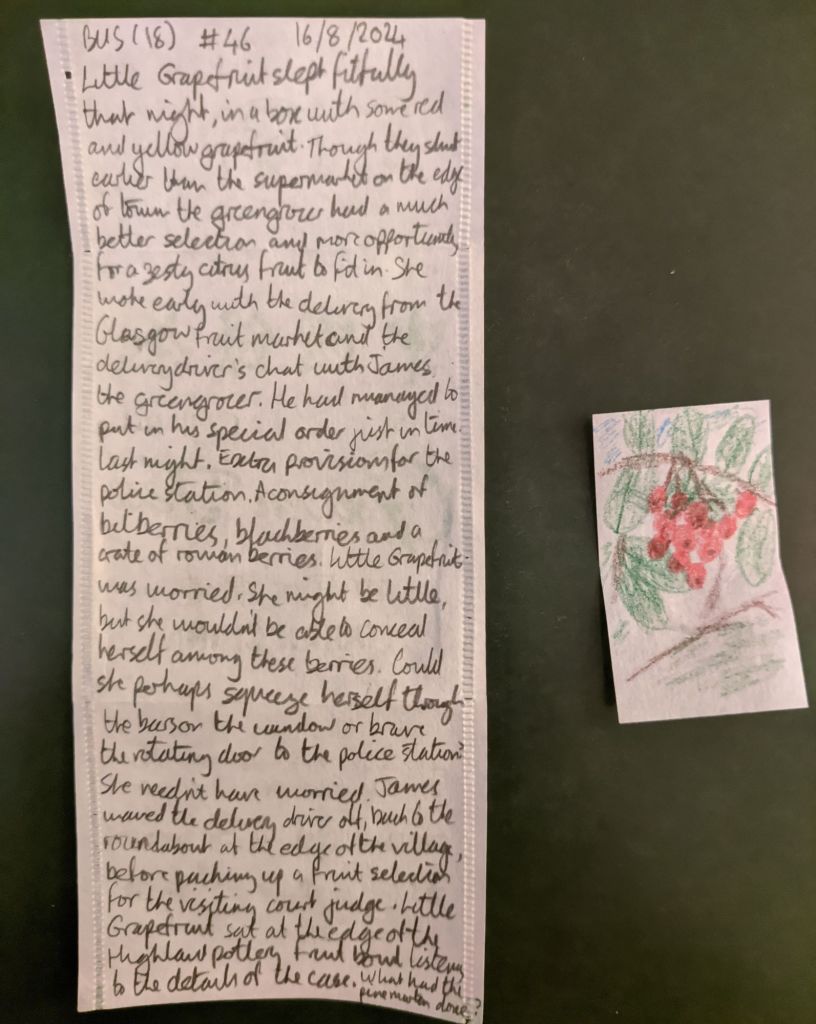 BUS (18) #46 16/8/2024
Little Grapefruit slept fitfully
that night, in a box with some red
and yellow grapefruit. Though they shut
earlier than the supermarket on the edge
of town the greengrocer had a much
better selection and more opportunity
for a zesty citrus fruit to fid in. She
woke early with the delivery from the
Glasgow fruit market and the
delivery driver's chat with James
the greengrocer. He had managed to
put in his special order just in time
last night. Extra provisions for the
police station. A consignment of
bilberries, blackberries and a
crate of rowan berries. Little Grapefruit
was worried. She might be little,
but she wouldn't be able to conceal
herself among these berries. Could
she perhaps squeeze herself through
the bars on the window or brave
the rotating door to the police station?
She needn't have worried. James
waved the delivery driver off, back to the
roundabout at the edge of the village,
before packing up a fruit selection
for the visiting court judge. Little
Grapefruit sat at the edge of the
Highland pottery fruit bowl listening
to the details of the case. What had the
pine marten done?